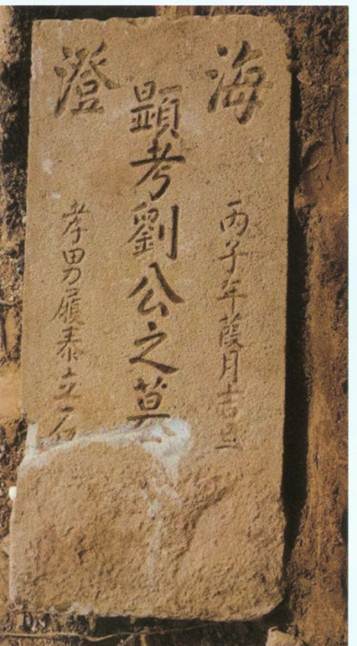 海澄
丙子年葭月吉旦
顕考劉公之墓
孝男履泰立石